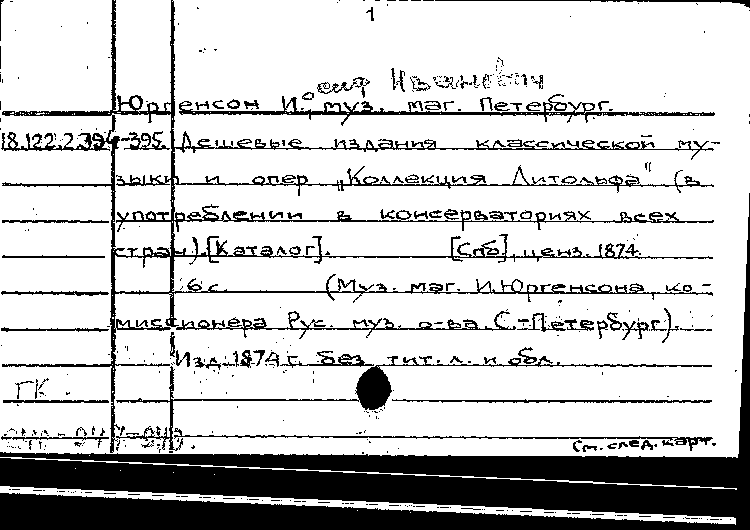 1
осиф Иванович
Юргенсон И., муз. маг. Петербург.
18.122.2.394-395. Дешевые издания классической му-
зыки и опер „Коллекция Литольфа" (в
употреблении в консерваториях всех
стран). [Каталог]. [Спб], ценз. 1874.
6 с. (Муз. маг. И. Юргенсона, ко-
миссионера Рус. муз. о-ва. С.-Петербург).
Изд. 1874 г. без тит. л. и обл.
ГК.
См. след. карт.